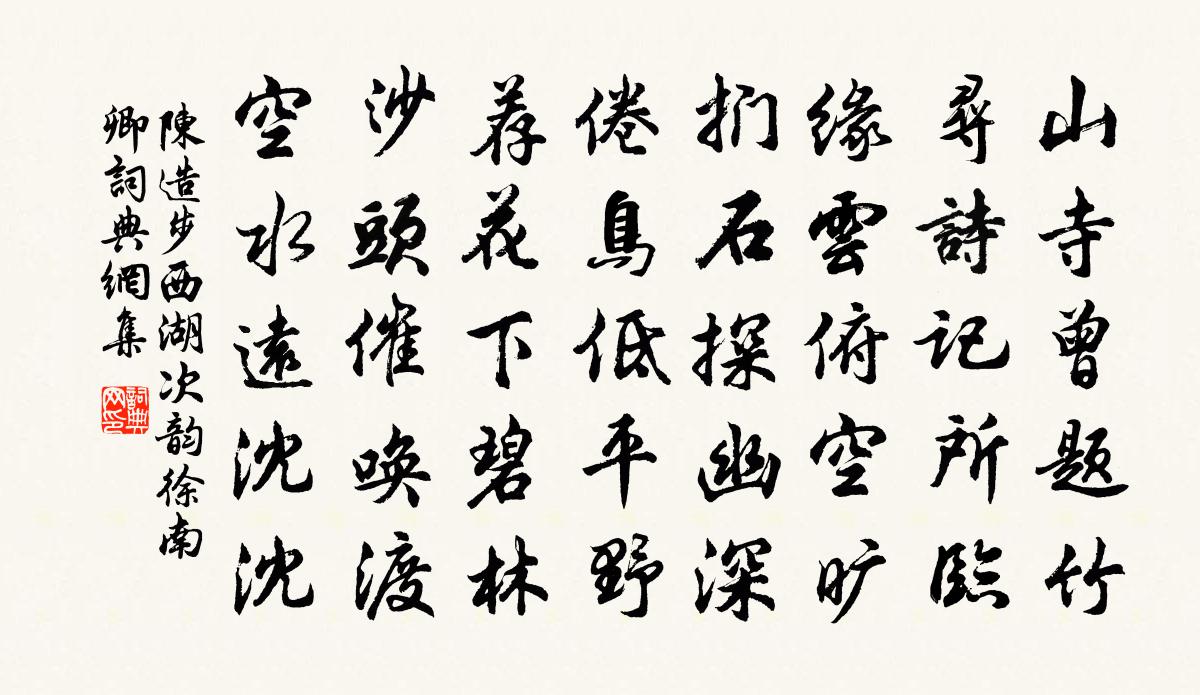 山寺曾題竹
尋詩記所臨
緣雲俯空曠
捫石探幽深
倦鳥低平野
荐花下碧林
沙頭催喚渡
空水遠沈沈
陳造步西湖次韵徐南
卿詞典網集
詞典
网印